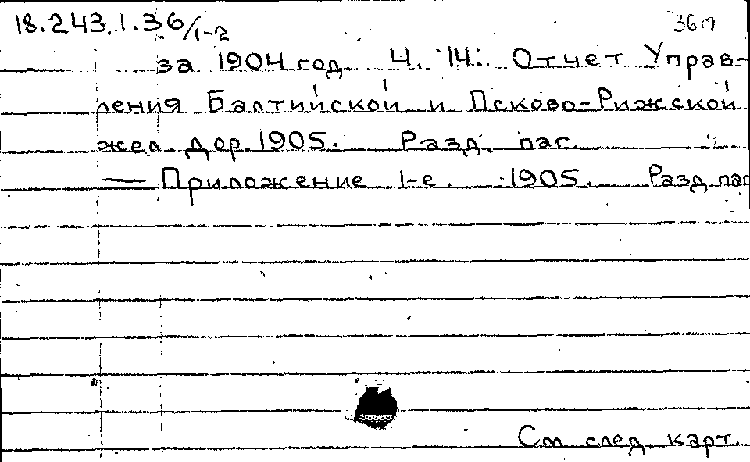 18.243.1.36/1-2
за 1904 год. Ч. 14: Отчет Управ-
ления Балтийской и Псково-Рижской
жел. дор. 1905. Разд. паг.
— Приложение 1-е. 1905. Разд. паг
См. след. карт.